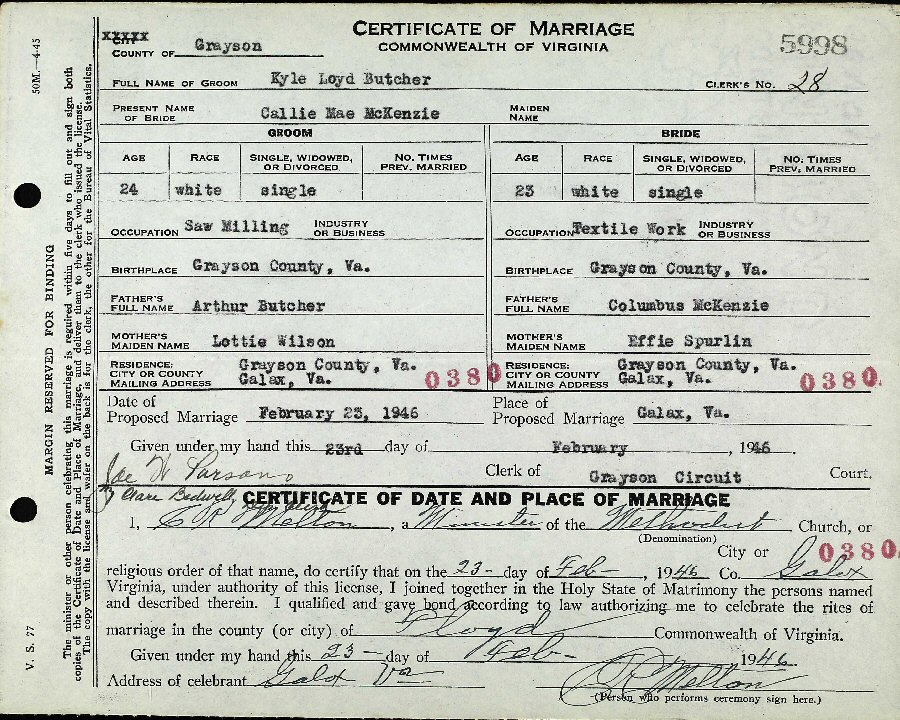 CERTIFICATE OF MARRIAGE
COMMONWEALTH OF VIRGINIA
5998
XXXXX
CITY
COUNTY OF Grayson
FULL NAME OF GROOM Kyle Loyd Butcher CLERK'S NO. 28
PRESENT NAME OF BRIDE Callie Mae McKenzie MAIDEN NAME
GROOM BRIDE
AGE RACE SINGLE, WIDOWED, OR DIVORCED NO. TIMES PREV. MARRIED AGE RACE SINGLE, WIDOWED, OR DIVORCED NO. TIMES PREV. MARRIED
24 white single 23 white single
OCCUPATION Saw Milling INDUSTRY OR BUSINESS OCCUPATION Textile Work INDUSTRY OR BUSINESS
BIRTHPLACE Grayson County, Va. BIRTHPLACE Grayson County, Va.
FATHER'S FULL NAME Arthur Butcher FATHER'S FULL NAME Columbus McKenzie
MOTHER'S MAIDEN NAME Lottie Wilson MOTHER'S MAIDEN NAME Effie Spurlin
RESIDENCE: CITY OR COUNTY Grayson County, Va. RESIDENCE: CITY OR COUNTY Grayson County, Va.
MAILING ADDRESS Galax, Va. 0380 MAILING ADDRESS Galax, Va. 0380.
Date of Proposed Marriage February 23, 1946 Place of Proposed Marriage Galax, Va.
Given under my hand this 23rd day of February, 1946
Joe W Parsons Clerk of Grayson Circuit Court.
By Clare Bedwell,
CERTIFICATE OF DATE AND PLACE OF MARRIAGE
I, C R Melton, a Minister of the Methodist Church, or
(Denomination)
City or 0380.
religious order of that name, do certify that on the 23- day of Feb-, 1946 Co. Galax
Virginia, under authority of this license, I joined together in the Holy State of Matrimony the persons named
and described therein. I qualified and gave bond according to law authorizing me to celebrate the rites of
marriage in the county (or city) of Floyd Commonwealth of Virginia.
Given under my hand this 23- day of Feb- 1946
Address of celebrant Galax Va C R Melton
(Person who performs ceremony sign here.)
50M.—4-45
V. S. 77
MARGIN RESERVED FOR BINDING
The minister or other person celebrating this marriage is required within five days to fill out and sign both
copies of the Certificate of Date and Place of Marriage, and deliver them to the clerk who issued the license.
The copy with the license and wafer on the back is for the clerk, the other for the Bureau of Vital Statistics.